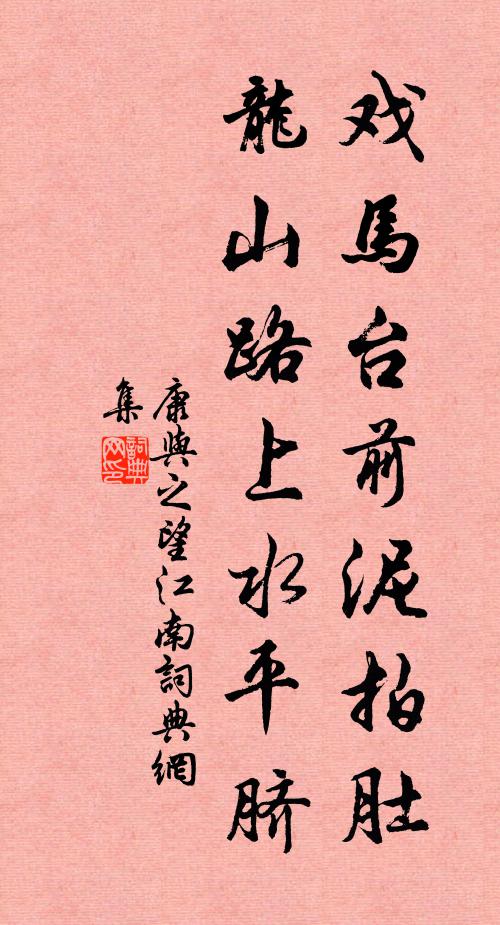 戏馬台前泥拍肚
龍山路上水平脐
康與之望江南詞典網
集
詞典網印